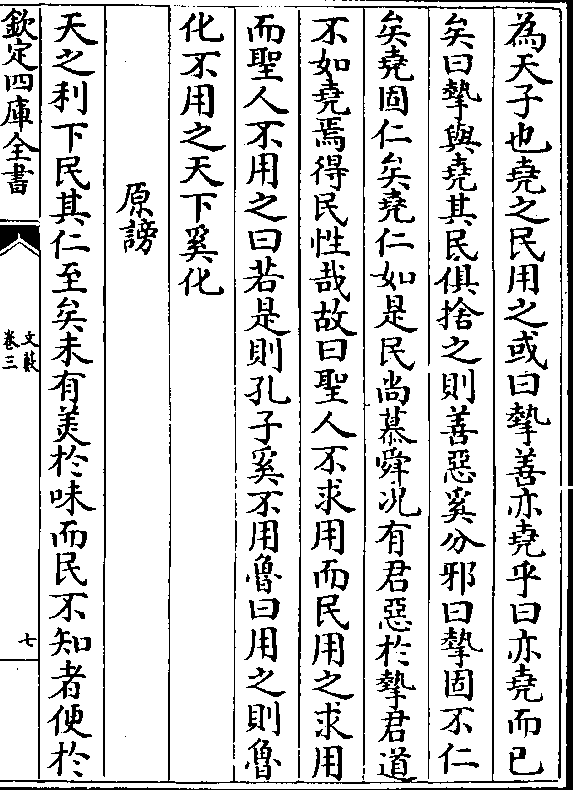 為天子也堯之民用之或曰摯善亦堯乎曰亦堯而已
矣曰摯與堯其民俱捨之則善惡奚分邪曰摯固不仁
矣堯固仁矣堯仁如是民尚慕舜况有君惡於摯君道
不如堯焉得民性哉故曰聖人不求用而民用之求用
而聖人不用之曰若是則孔子奚不用魯曰用之則魯
化不用之天下奚化
原謗
天之利下民其仁至矣未有美於味而民不知者便於
欽定四庫全書
文藪
卷三
七